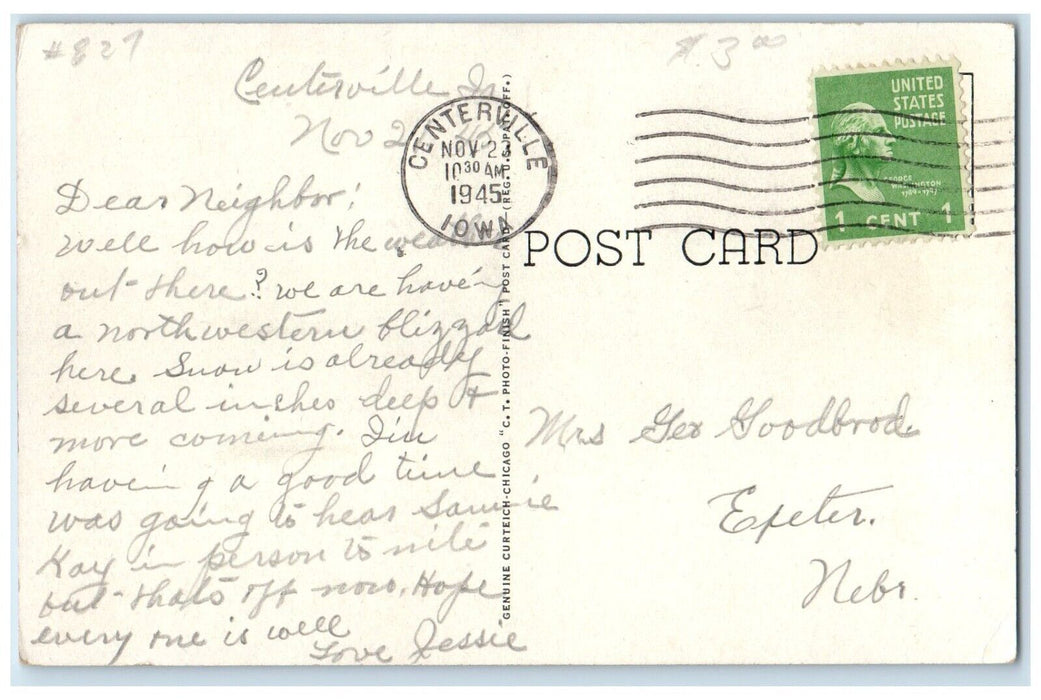 #827
$3.00
Centerville Ia
Nov 2
CENTERVILLE
NOV 23
10 30 AM
1945
IOWA
UNITED
STATES
POSTAGE
GEORGE
WASHINGTON
1789-1797
1 CENT 1
POST CARD
Dear Neighbor;
well how is the
out there? we are haveing
a northwestern blizzard
here. Snow is already
several inches deep &
more coming. I'm
having a good time
was going to hear Sammie
Kay in person to nite
but thats off now. Hope
every one is well
Love Jessie
GENUINE CURTEICH-CHICAGO "C. T. PHOTO-FINISH" POST CARD (REG. U.S. PAT. OFF.)
Mrs Geo Goodbrod.
Exeter.
Nebr.